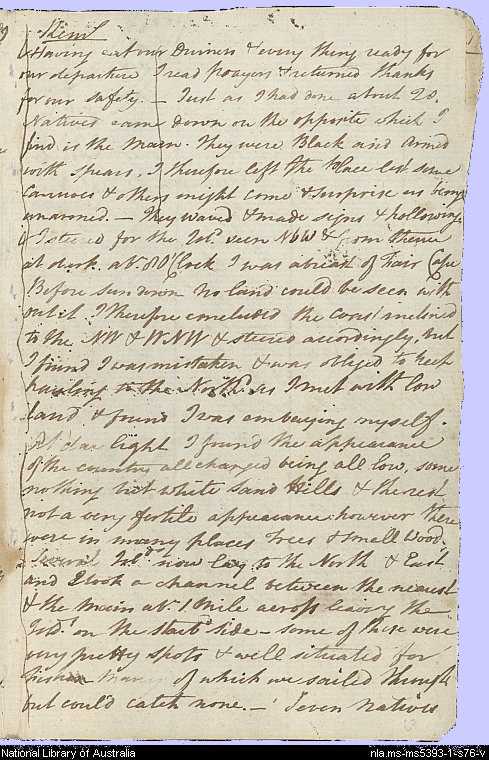 Having eat our Dinners & every thing ready for
our departure I read prayers & returned thanks
for our safety. — Just as I had done about 20.
Natives came down on the opposite which I
find is the Main. They were Black and Armed
with spears, I therefore left the place lest some
Cannoes & others might come & surprise us being
unarmed. — They waved & made signs & hollowing
I steered for the Isld. seen NbW & from thence
at dark. abt. 8 O'Clock I was abreast of Fair Cape
Before sun down no land could be seen with
out it. I therefore concluded the coast inclined
to the NW & WNW & steered accordingly, but
I found I was mistaken & was obliged to keep
hauling to the North as I met with low
land & found I was embaying myself.
At day light I found the appearance
of the country all changed being all low, some
nothing but white sand Hills & the rest
not a very fertile appearance however there
were in many places Trees & small Wood.
Several Islds. now lay to the North & East
and I took a channel between the nearest
& the main abt. 1 Mile across leaving the
Isds. on the starbd. side — some of these were
very pretty spots & well situated for
fishing many of which we sailed through
but could catch none. — Seven Natives
National Library of Australia
nla.ms-ms5393-1-s76-v